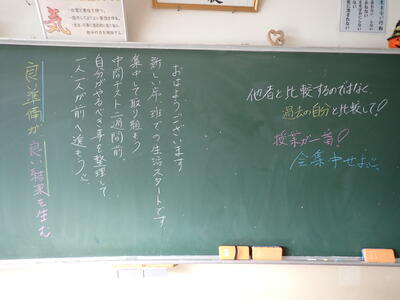 他者と比較するのではなく、
過去の自分と比較して!
授業が一番!
全集中せよ
おはようございます
新しい席、班での生活スタートです
集中して取り組もう
中間テスト二週間前、
自分がやるべき事を整理して
一人一人が前へ進もう
良い準備が良い結果を生む